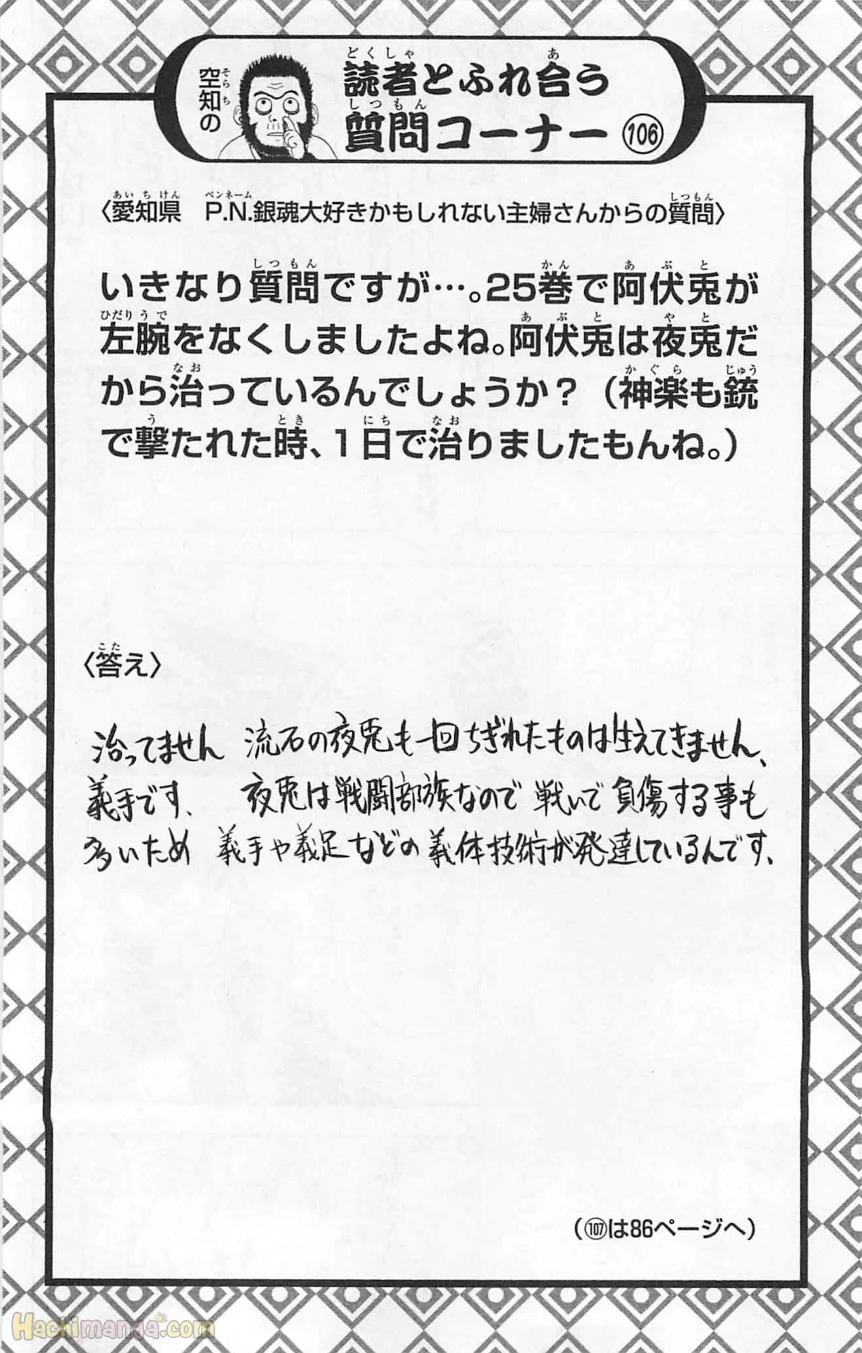 空知の
読者とふれ合う
質問コーナー 106
〈愛知県 P.N.銀魂大好きかもしれない主婦さんからの質問〉
いきなり質問ですが…。25巻で阿伏兎が
左腕をなくしましたよね。阿伏兎は夜兎だ
から治っているんでしょうか？（神楽も銃
で撃たれた時、1日で治りましたもんね。）
〈答え〉
治ってません 流石の夜兎も一回ちぎれたものは生えてきません、
義手です、 夜兎は戦闘部族なので 戦いで 負傷する事も
多いため 義手や義足などの義体技術が発達しているんです、
（107は86ページへ）
Hachimanga.com